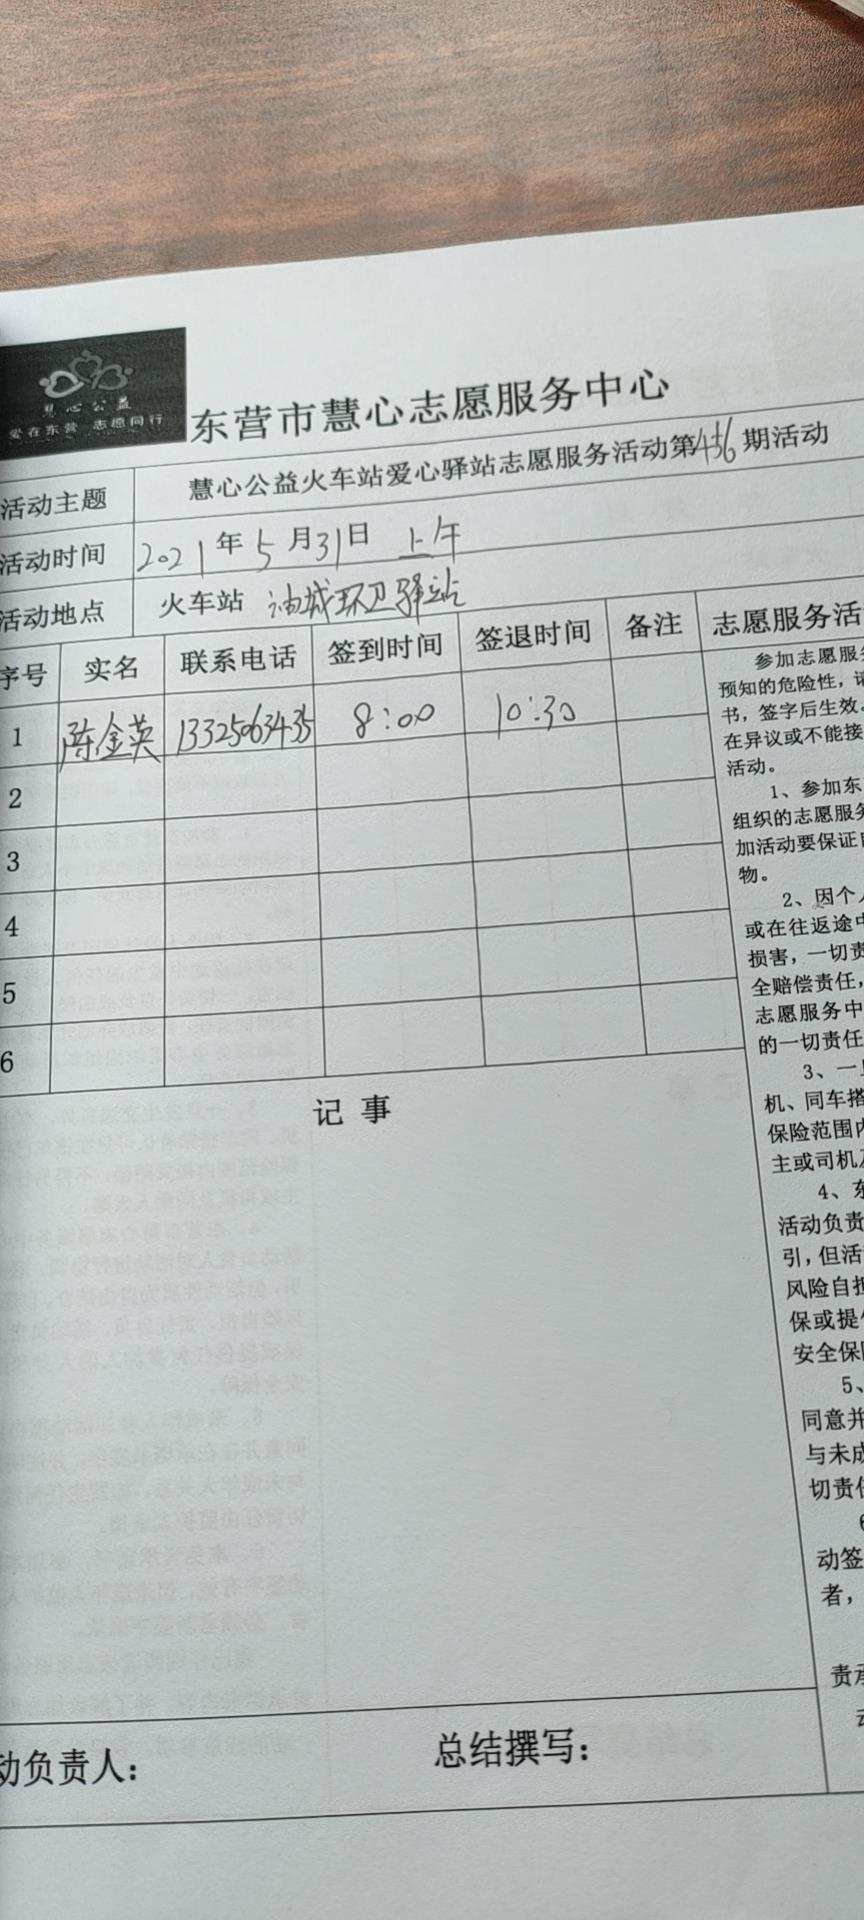 慧心公益
爱在东营 志愿同行
东营市慧心志愿服务中心
活动主题 慧心公益火车站爱心驿站志愿服务活动第456期活动
活动时间 2021年5月31日 上午
活动地点 火车站 油城环卫驿站
序号 实名 联系电话 签到时间 签退时间 备注
1 陈金英 13325063435 8:00 10:30
2
3
4
5
6
记事
动负责人：
总结撰写：
志愿服务活
参加志愿服务
预知的危险性，请
书，签字后生效。
在异议或不能接
活动。
1、参加东
组织的志愿服务
加活动要保证自
物。
2、因个人
或在往返途中
损害，一切责
全赔偿责任，
志愿服务中
的一切责任
3、一旦
机、同车搭
保险范围内
主或司机及
4、东
活动负责
引，但活
风险自担
保或提供
安全保障
5、
同意并
与未成
切责任
6
动签
者，
责承
动